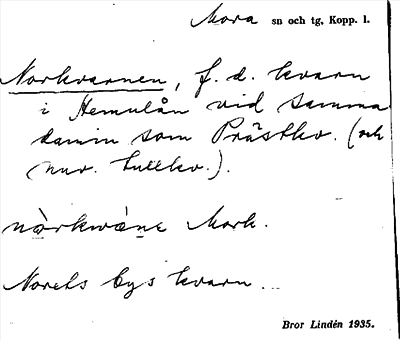 Mora sn och tg, Kopp. l.
Norkvarnen, f. d. kvarn
i Hemulån vid samma
damm som Prästkv. (och
nuv. tullkv.).
nòrkwáne Mork.
Norets bys kvarn...
Bror Lindén 1935.